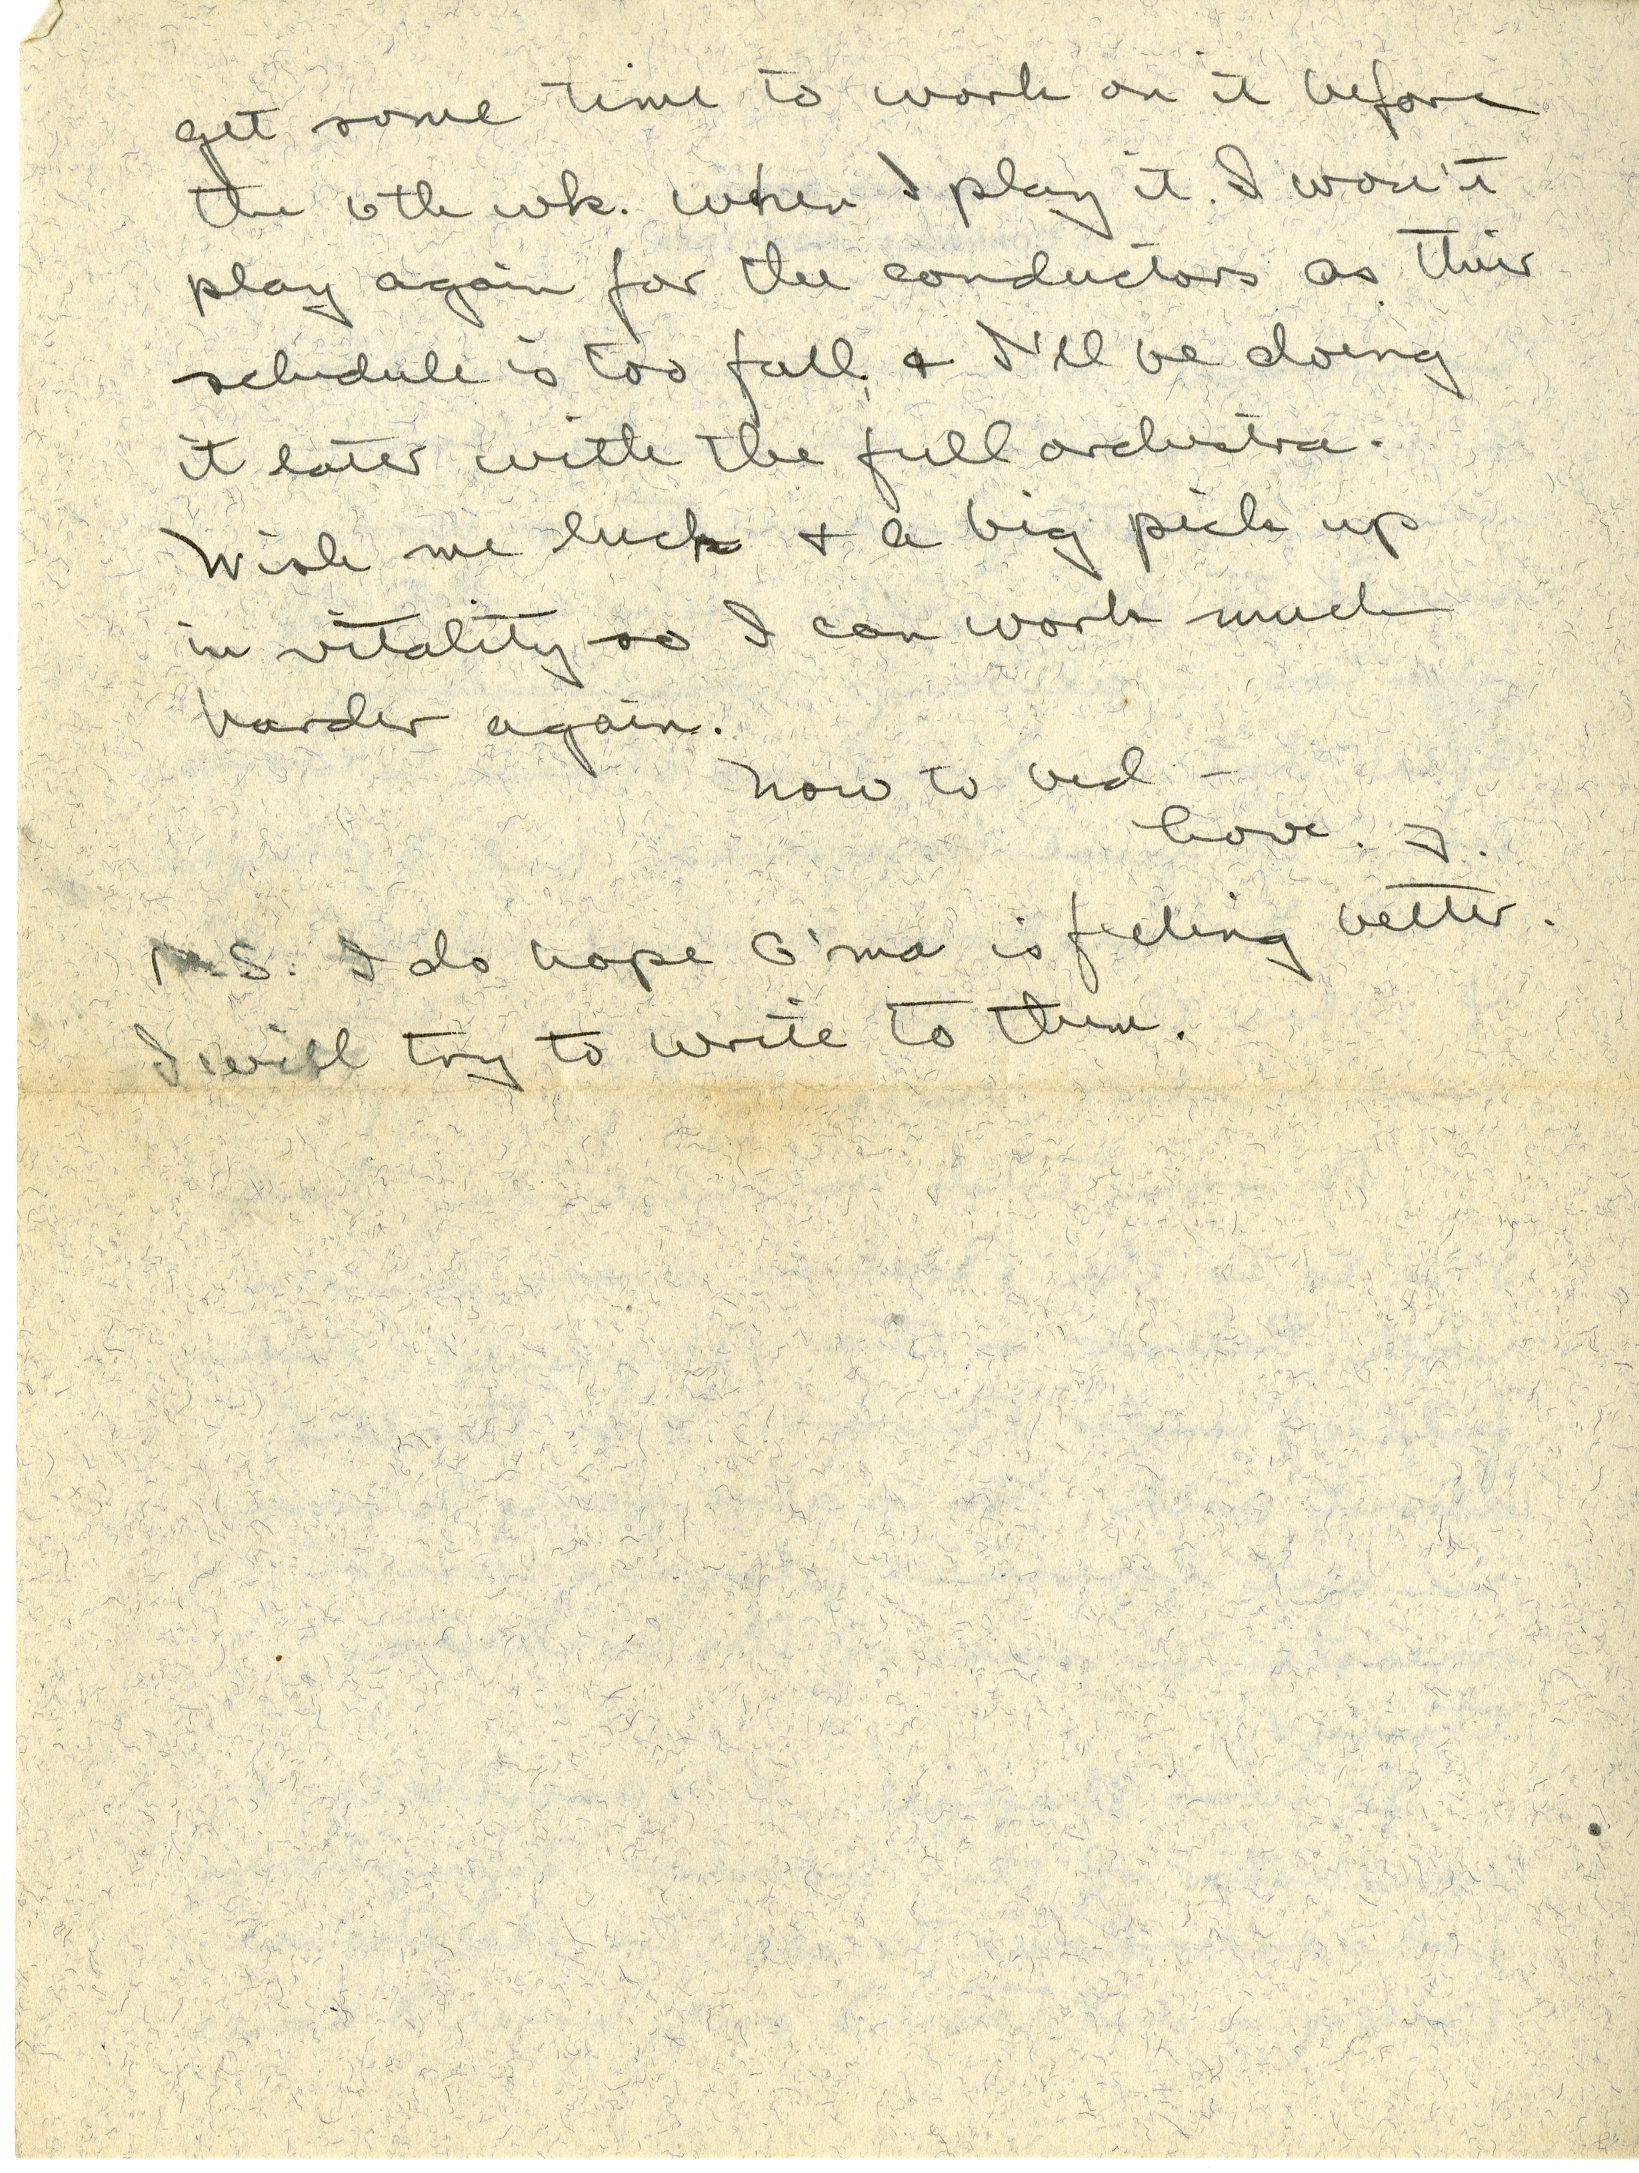 get some time to work on it before
the 6th wk. when I play it. I won't
play again for the conductors as their
schedule is too full, & I'll be doing
it later with the full orchestra.
Wish me luck & a big pick up
in vitality so I can work much
harder again.
Now to bed –
Love. J.
P.S. I do hope G'ma is feeling better.
I will try to write to them.